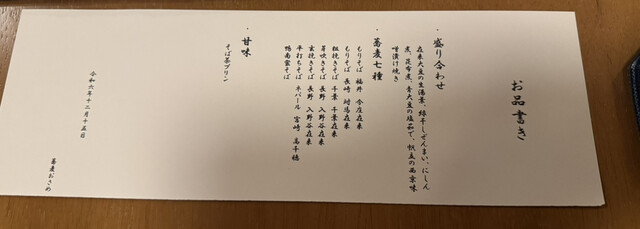 お品書き
・盛り合わせ
在来大豆の生湯葉、絹干しぜんまい、にしん
煮、昆布煮、青大豆の塩茹で、帆立の西京味
噌漬け焼き
・蕎麦七種
もりそば 福井 今庄在来
もりそば 長崎 対馬在来
粗挽きそば 千葉 千葉在来
芽吹きそば 長野 入野谷在来
玄挽きそば 長野 入野谷在来
平打ちそば ネパール 宮崎 高千穂
鴨南蛮そば
・甘味
そば茶プリン
令和六年十二月十五日
蕎麦おさめ